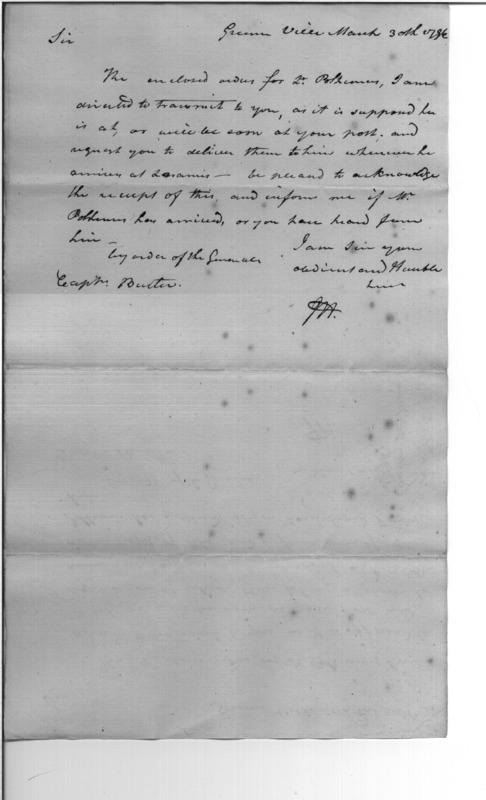 Greene Ville March 30th 1796
Sir
The enclosed orders for Lt. Polhemus, I am
directed to transmit to you, as it is suppos'd he
is at, or will be soon at your post. and
request you to deliver them to him whenever he
arrives at Loramis — be pleasd to acknowledge
the receipt of this, and inform me if Mr.
Polhemus has arrived, or you have heard from
him —
I am Sir your
by order of the General
obedient and Humble
Capt. Butler.